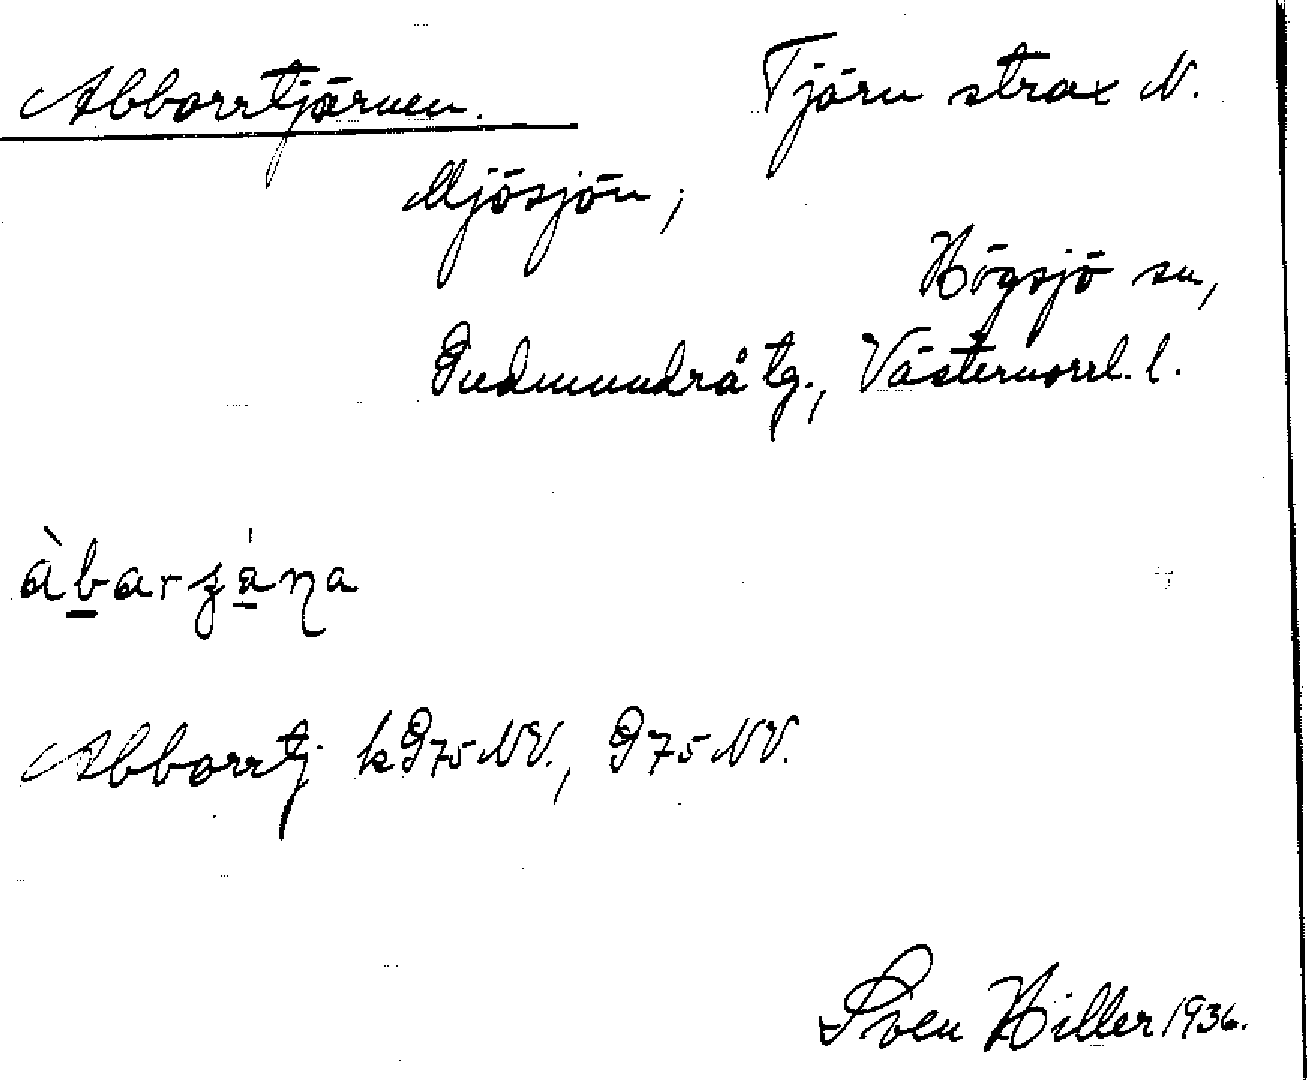 Abborrtjärnen. Tjärn strax N.
Mjösjön,
Högsjö sn,
Gudmundrå tg., Västernorrl. l.
àbarʒána
Abborrtj k G75 NV., G75 NV.
Sven Hiller 1936.